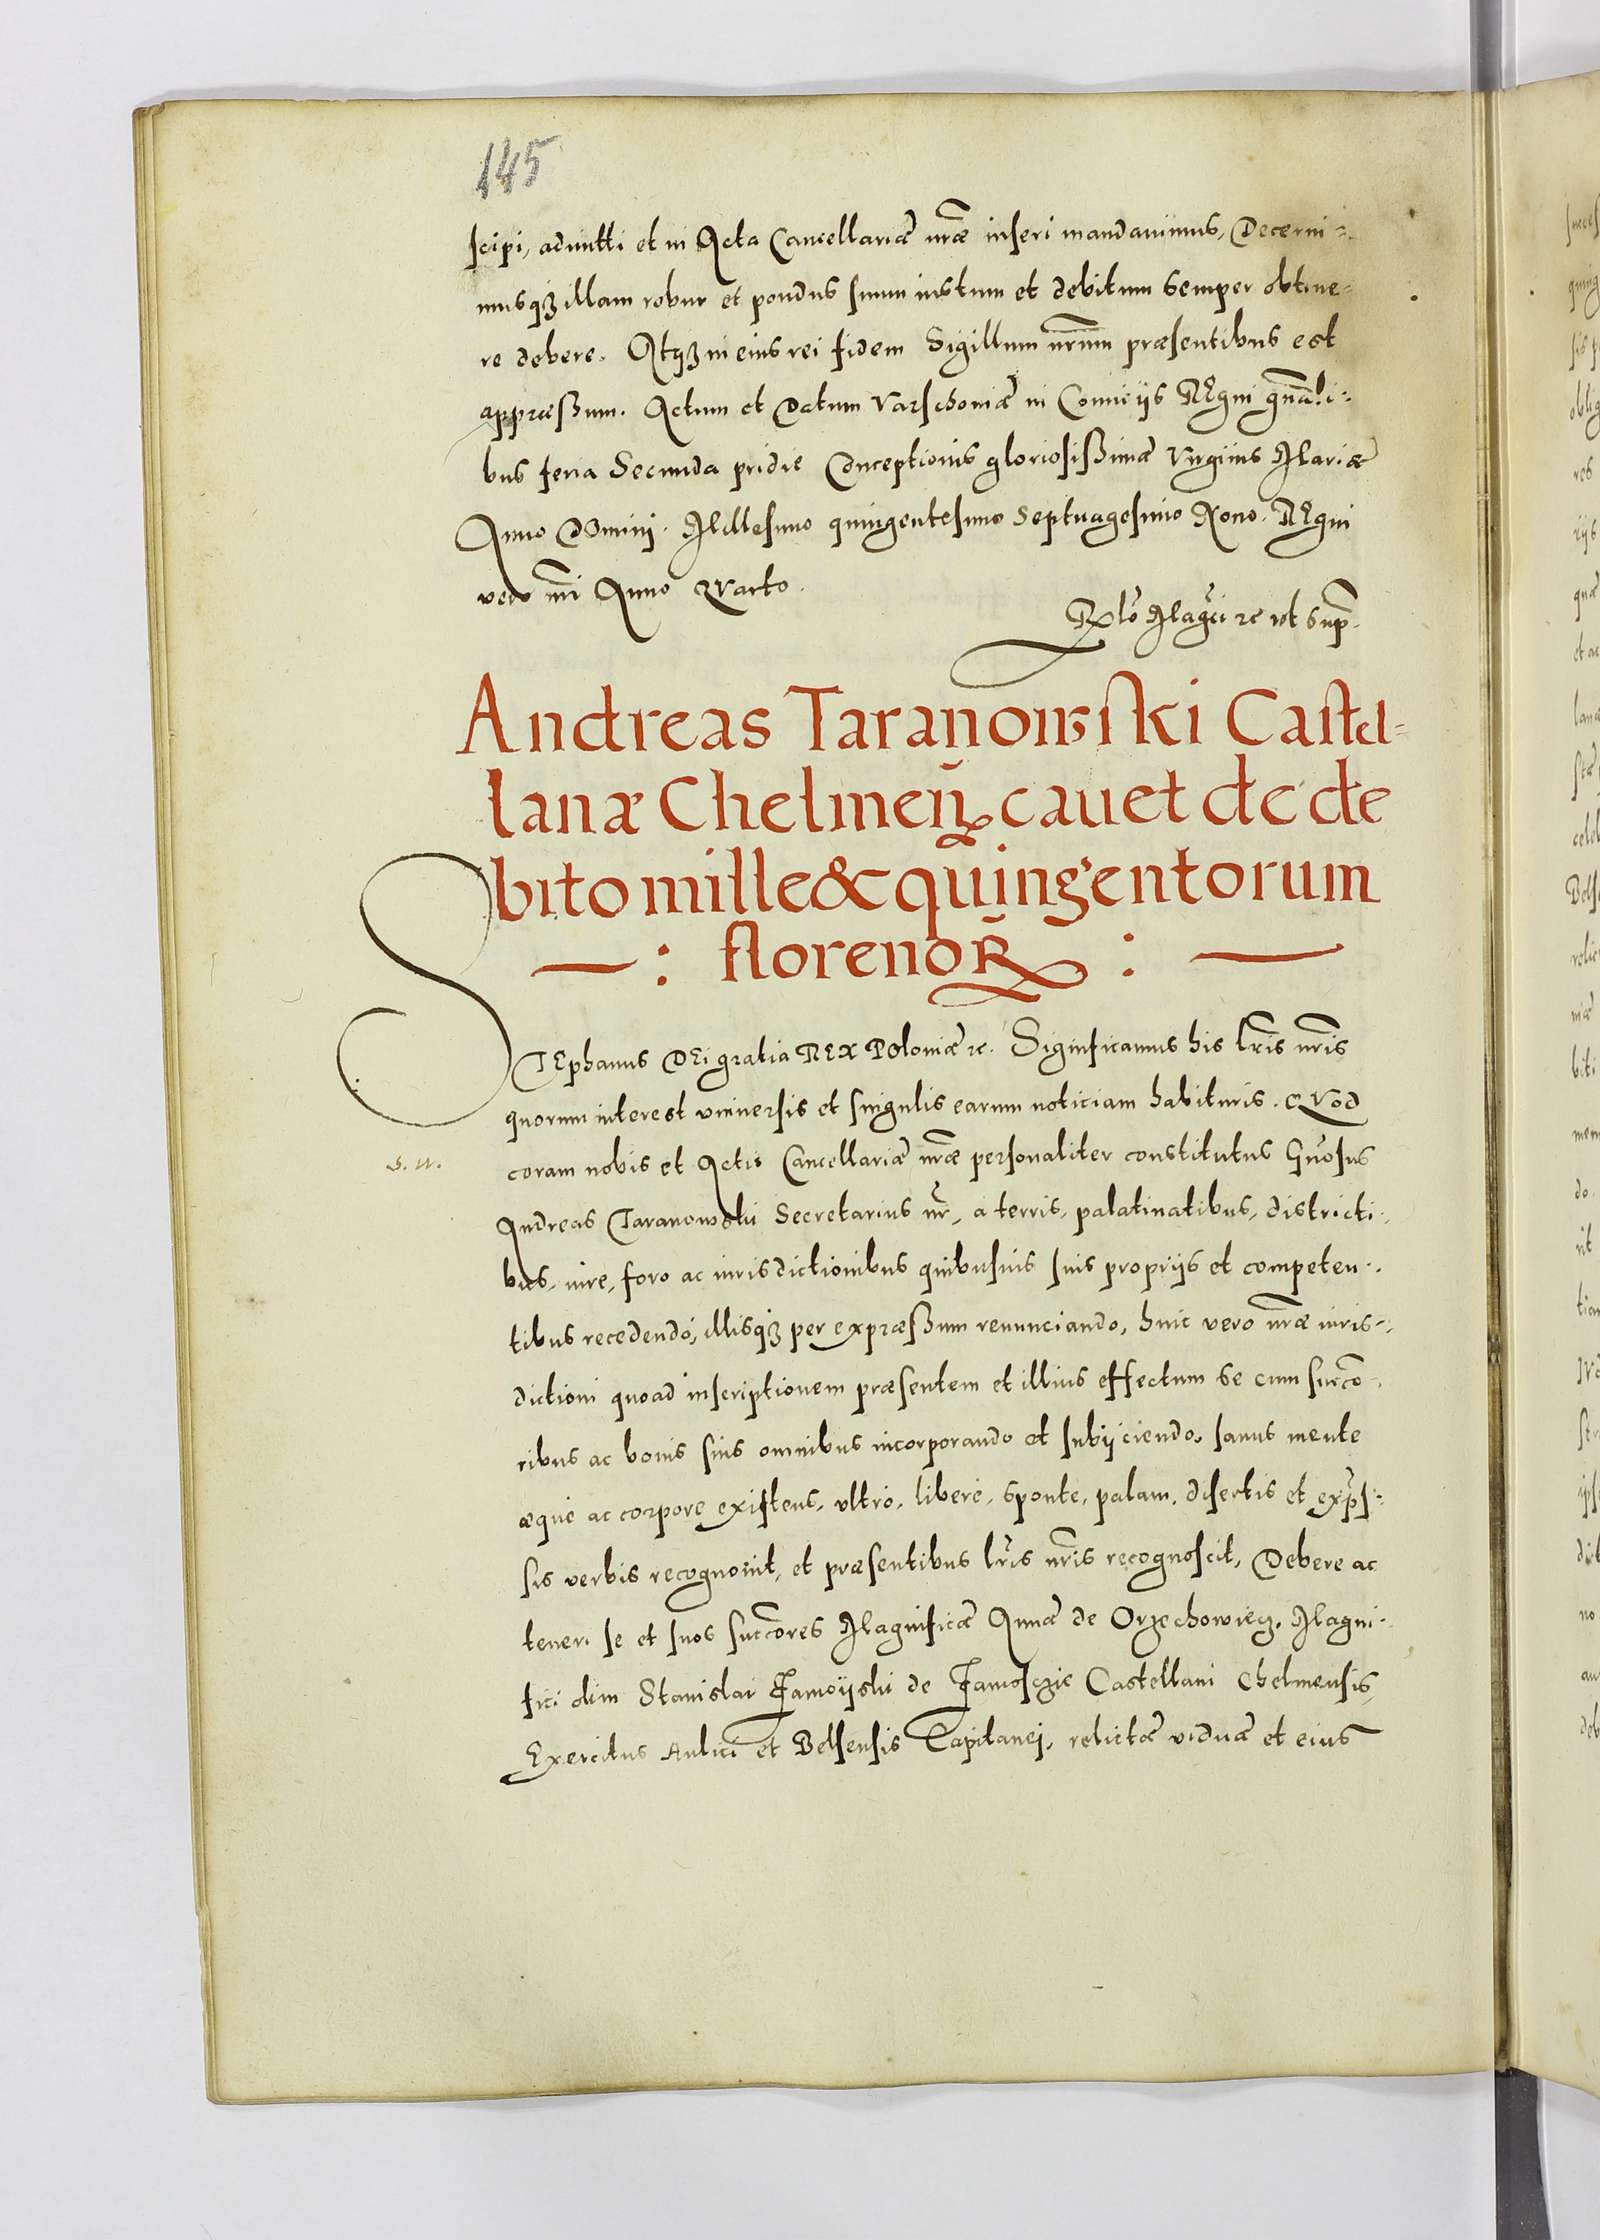 145
scipi, admitti et in Acta Cancellariæ nr̃æ inseri mandauimus, Decerni-
musqȝ illam robur et pondus suum iustum et debitum semper obtine-
re debere. Atqȝ in eius rei fidem Sigillum nr̃um præsentibus est
appræssum. Actum et Datum Varschouiæ in Comicijs REgni gñali-
bus feria Secunda pridie Conceptionis gloriosissimæ Virginis Mariæ
Anno DOmini. Millesimo quingentesimo Septuagesimo Nono. REgni
vero nr̃i Anno QVarto.
Rlo Magci ꝛc vt sup.
Andreas Taranowski Castel-
lanæ Chelmeñ cauet de de
bito mille & quingentorum
— : florenoR̃ : —
STEphanus DEi gratia REX POloniæ ꝛc. Significamus his lr̃is nr̃is
quorum interest vniuersis et singulis earum noticiam habituris. QVod
coram nobis et Actis Cancellariæ nr̃æ personaliter constitutus Gñosus
S. N.
Andreas Taranowski Secretarius nr̃, a terris, palatinatibus, districti-
bus, iure, foro ac iurisdictionibus quibusuis suis proprijs et competen-
tibus recedendo, illisqȝ per expræssum renunciando, huic vero nr̃æ iuris-
dictioni quoad inscriptionem præsentem et illius effectum se cum succo-
ribus ac bonis suis omnibus incorporando et subijciendo, sanus mente
æque ac corpore existens, vltro, libere, sponte, palam, disertis et exp̃s-
sis verbis recognouit, et præsentibus lr̃is nr̃is recognoscit, Debere ac
teneri se et suos succores Magnificæ Annæ de Orzechowiecz, Magni-
fici olim Stanislai Zamoijski de Zamosczie Castellani Chelmensis,
Exercitus Aulici et Belsensis Capitanei, relictæ viduæ et eius